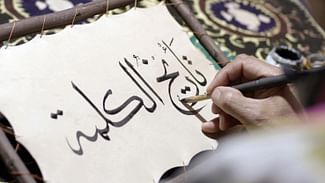 تاريخ الكلمة